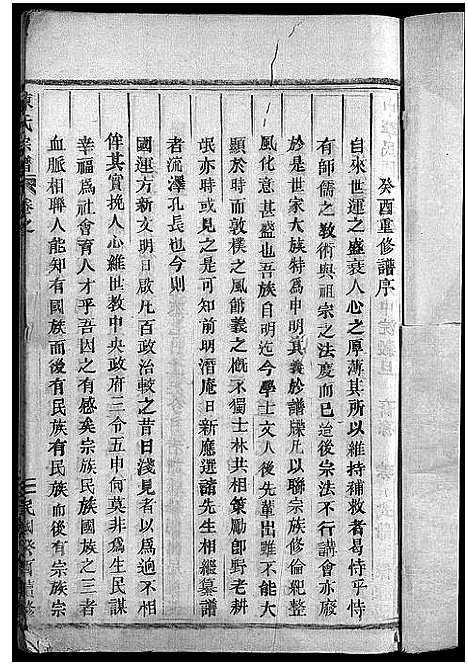 癸酉重修譜序
自來世運之盛衰人心之厚薄其所以維持補救者曷恃乎恃
有師儒之教術與祖宗之法度而已迨後宗法不行講會亦廢
於是世家大族特爲申明其義於譜牒凡以聯宗族修倫紀整
風化意甚盛也吾族自明迄今學士文人後先輩出雖不能大
顯於時而敦樸之風節義之概不獨士林共相策勵卽野老耕
氓亦時或可知前明潛庵日新應選諸先生相繼纂譜
者流澤孔長也今則
國運方新文明日啟凡百政治較之昔日淺見者以爲迥不相
侔其實挽人心維世教中央政府三令五申何莫非爲生民謀
幸福爲社會育人才乎吾因之有感矣宗族民族國族之三者
血脈相聯人能知有國族而後有民族有民族而後有宗族宗
氏宗譜
卷之
民國癸酉續修